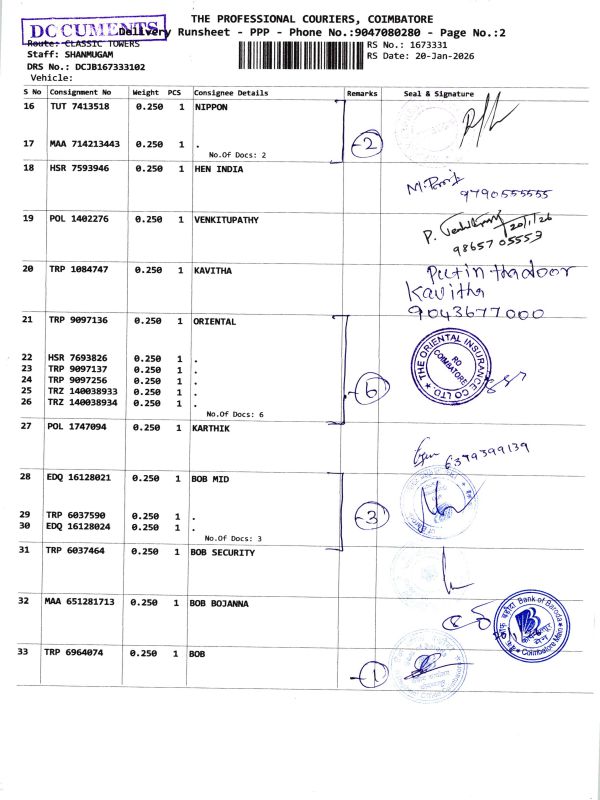 THE PROFESSIONAL COURIERS, COIMBATORE
DOCUMENTS
Delivery Runsheet - PPP - Phone No.:9047080280 - Page No.:2
Route: CLASSIC TOWERS
RS No.: 1673331
Staff: SHANMUGAM
RS Date: 20-Jan-2026
DRS No.: DCJB167333102
Vehicle:
S No Consignment No Weight PCS Consignee Details Remarks Seal & Signature
16 TUT 7413518 0.250 1 NIPPON
17 MAA 714213443 0.250 1 .
No.Of Docs: 2
-2
18 HSR 7593946 0.250 1 HEN INDIA
9790555555
19 POL 1402276 0.250 1 VENKITUPATHY
20/1/26
9865705553
20 TRP 1084747 0.250 1 KAVITHA
Put in tha door
Kavitha
9043677000
21 TRP 9097136 0.250 1 ORIENTAL
THE ORIENTAL INSURANCE CO LTD.
RO
COIMBATORE
22 HSR 7693826 0.250 1 .
23 TRP 9097137 0.250 1 .
24 TRP 9097256 0.250 1 .
25 TRZ 140038933 0.250 1 .
26 TRZ 140038934 0.250 1 .
No.Of Docs: 6
-6
27 POL 1747094 0.250 1 KARTHIK
6379399139
28 EDQ 16128021 0.250 1 BOB MID
29 TRP 6037590 0.250 1 .
30 EDQ 16128024 0.250 1 .
No.Of Docs: 3
-3
31 TRP 6037464 0.250 1 BOB SECURITY
32 MAA 651281713 0.250 1 BOB BOJANNA
Bank of Baroda
Coimbatore Main
33 TRP 6964074 0.250 1 BOB
-1